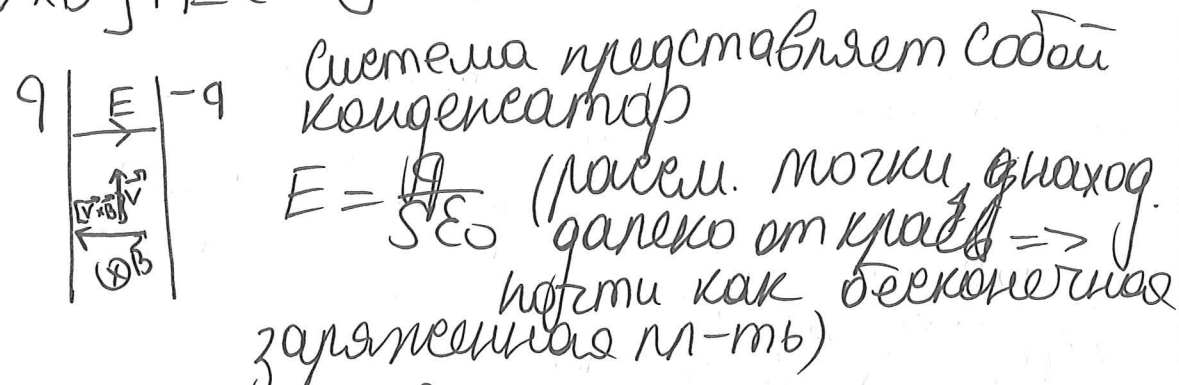 система представляет собой
конденсатор
q E -q
E = q/Sε₀ (рассм. точки, наход.
[V⃗×B⃗] V⃗
далеко от краёв =>
⊗B
почти как бесконечная
заряженная пл-ть)